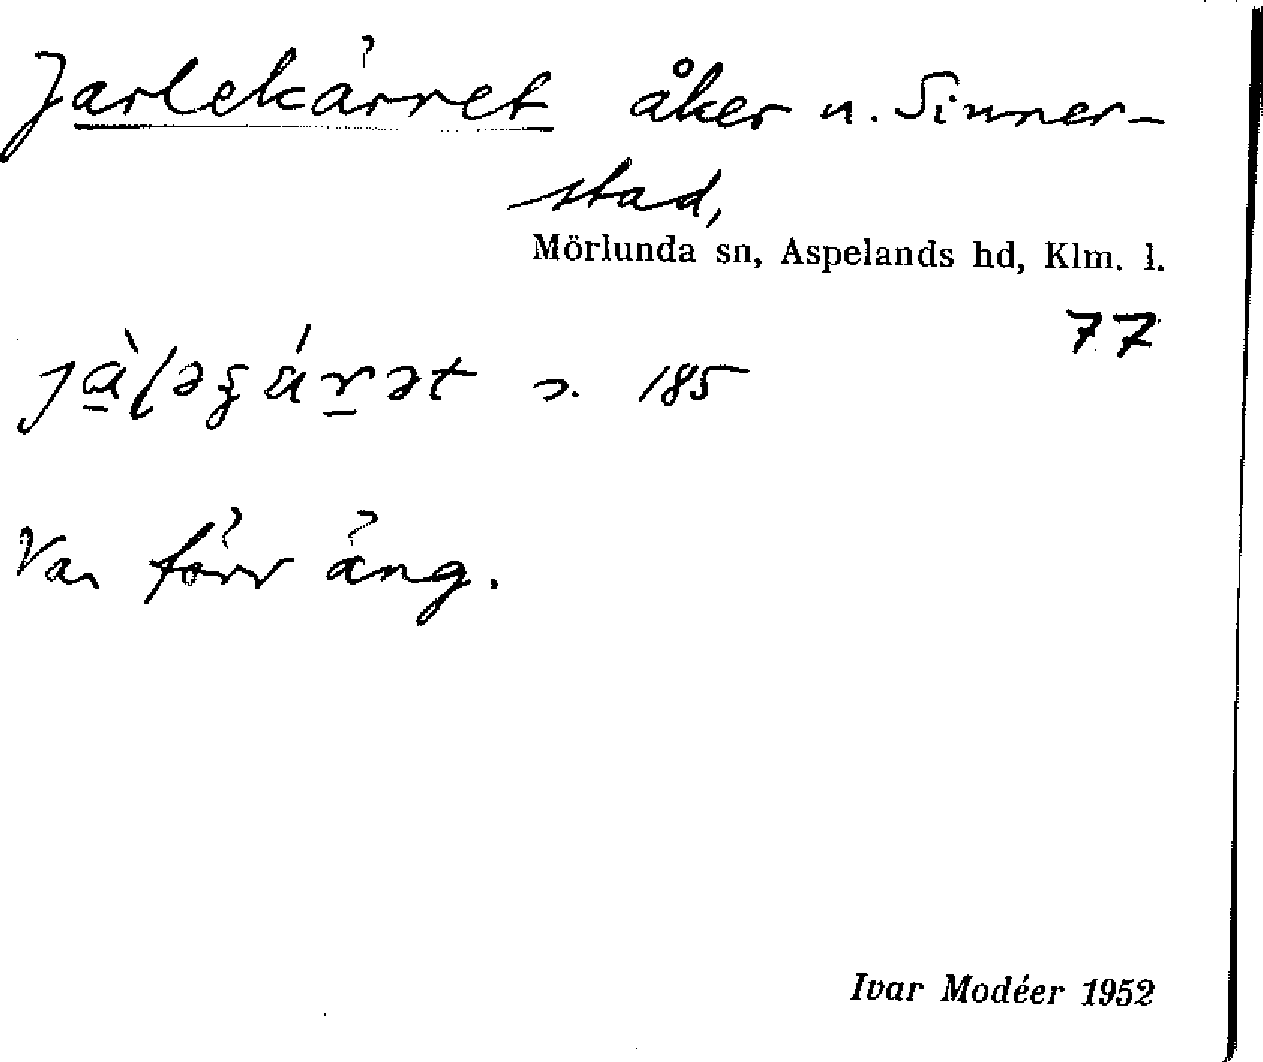 Jarlekärret åker n. Sinner-
stad,
Mörlunda sn, Aspelands hd, Klm. l.
77
s. 185
Var förr äng.
Ivar Modéer 1952